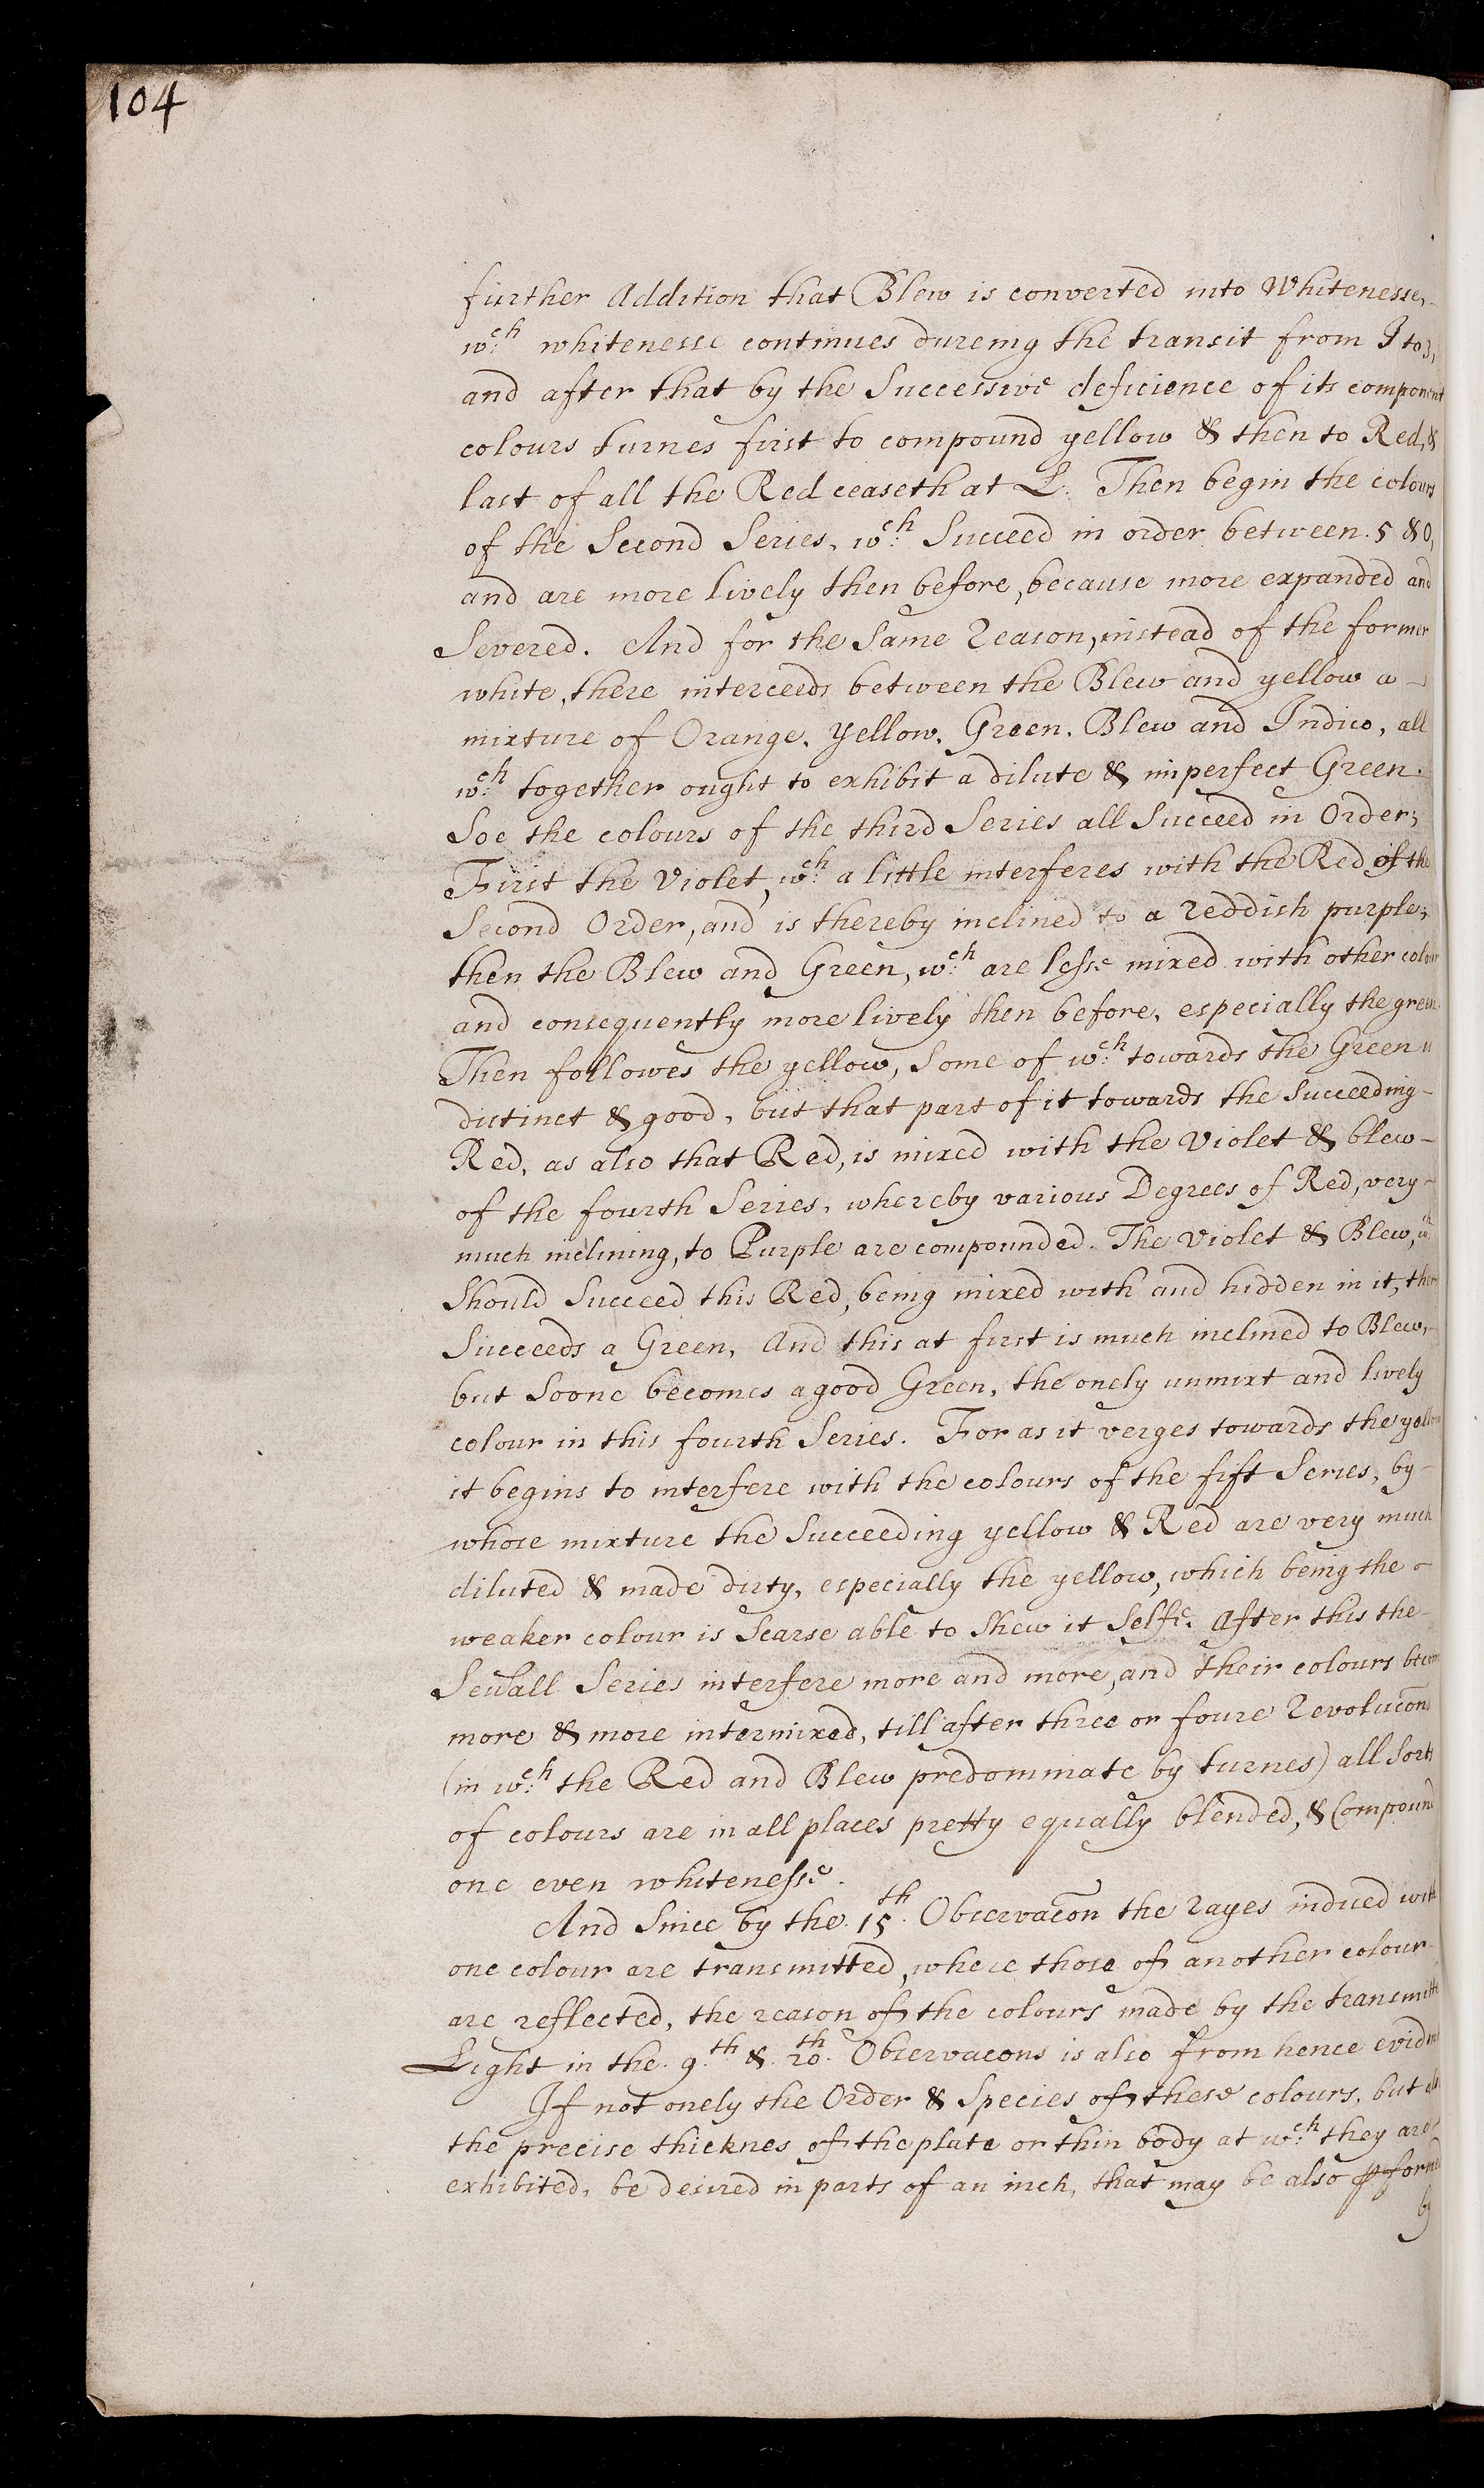 104
further Addition that Blew is converted into Whitenesse,
wch whitenesse continues dureing the transit from I to 3,
and after that by the Successive deficience of its component
colours turnes first to compound yellow & then to Red, &
last of all the Red ceaseth at L. Then begin the colours
of the Second Series, wch Succeed in order between 5 & O,
and are more lively then before, because more expanded and
Severed. And for the Same Reason, instead of the former
white, there interceeds between the Blew and yellow a
mixture of Orange, Yellow, Green, Blew and Indico, all
wch together ought to exhibit a dilute & imperfect Green.
Soe the colours of the third Series all Succeed in Order;
First the Violet, wch a little interferes with the Red of the
Second Order, and is thereby inclined to a reddish purple;
then the Blew and Green, wch are lesse mixed with other colour
and consequently more lively then before, especially the green.
Then followes the yellow, Some of wch towards the Green is
distinct & good, but that part of it towards the Succeeding
Red, as also that Red, is mixed with the Violet & blew
of the fourth Series, whereby various Degrees of Red, very
much inclining, to Purple are compounded. The Violet & Blew, wch
Should Succeed this Red, being mixed with and hidden in it, there
Succeeds a Green, And this at first is much inclined to Blew,
but Soone becomes a good Green, the onely unmixt and lively
colour in this fourth Series. For as it verges towards the yellow
it begins to interfere with the colours of the fift Series, by
whose mixture the Succeeding yellow & Red are very much
diluted & made dirty, especially the yellow, which being the
weaker colour is Scarse able to Shew it Selfe. After this the
Sevall Series interfere more and more, and their colours become
more & more intermixed, till after three or foure Revolucons
(in wch the Red and Blew predominate by turnes) all Sorts
of colours are in all places pretty equally blended, & Compound
one even whitenesse.
And Since by the 15th Observacon the rayes indued with
one colour are transmitted, where those of another colour
are reflected, the reason of the colours made by the transmitted
Light in the 9th & 20th Observacons is also from hence evident
If not onely the Order & Species of these colours, but also
the precise thicknes of the plate or thin body at wch they are
exhibited, be desired in parts of an inch, that may be also pformd
by